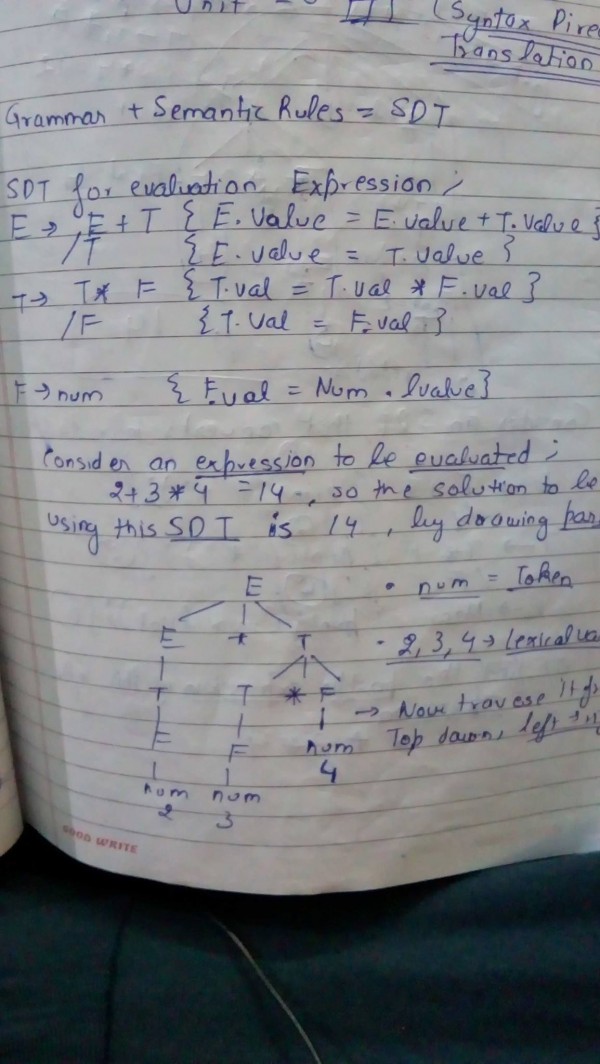 Unit - III (Syntax Dire
Translation
Grammar + Semantic Rules = SDT
SDT for evaluation Expression ;
E → E + T { E. Value = E. value + T. Value }
/T { E. value = T. value }
T → T * F { T. val = T. val * F. val }
/F { T. Val = F. val . }
F → num { F. val = Num . lvalue }
Consider an expression to be evaluated ;
2+3*4 = 14 , so the solution to be
using this SDT is 14 , by drawing par
E
• num = Token
E + T
• 2, 3, 4 → lexical va
T T * F
→ Now travese it
F F num
Top down, left
4
num num
2 3
GOOD WRITE